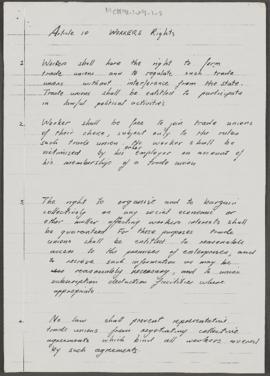 Article 10 WORKERS Rights
Worker shall have the right to form
trade unions and to regulate such trade
unions without interference from the state.
Trade unions shall be entitled to participate
in lawful political activities
2. Worker shall be free to join trade unions
of their choice, subject only to the rules
such trade union. No worker shall be
victimised by his employer on account of
his membership of a trade union
3. The right to organise and to bargain
collectively on any social economic or
other matter affecting workers interests shall
be guaranteed. For these purposes trade
unions shall be entitled to reasonable
access to the premises of enterprises, and
to receive such information as may be
reasonably necessary, and to union
subscription deduction facilities where
appropriate
4. No law shall prevent representative
trade unions from negotiating collective
agreements which bind all workers covered
by such agreements